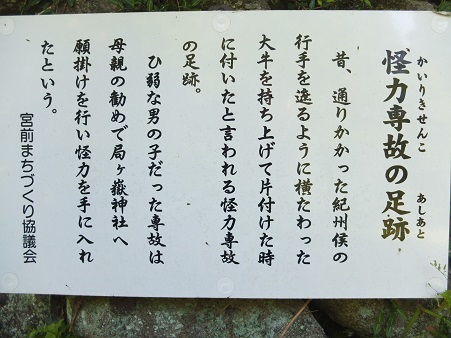 かいりきせんこ
あしあと
怪力専故の足跡
昔、通りかかった紀州侯の
行手を遮るように横たわった
大牛を持ち上げて片付けた時
に付いたと言われる怪力専故
の足跡。
ひ弱な男の子だった専故は
母親の勧めで局ヶ嶽神社へ
願掛けを行い怪力を手に入れ
たという。
宮前まちづくり協議会